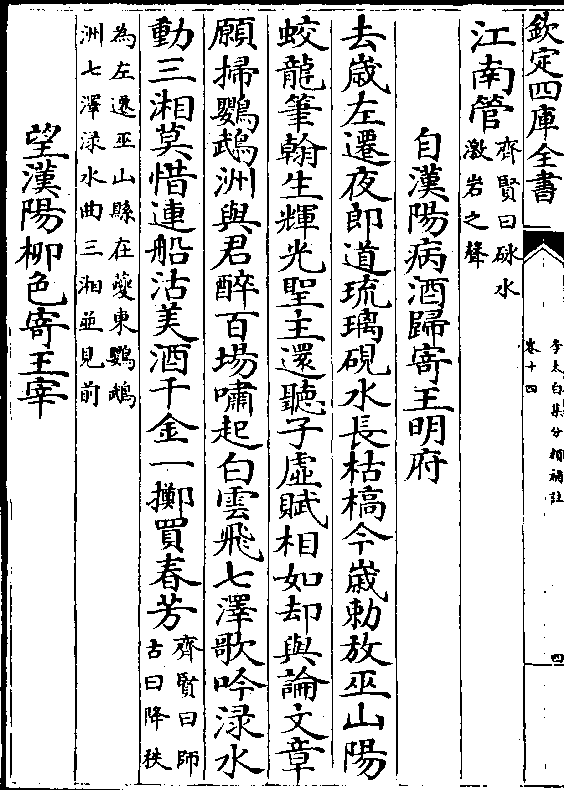 欽定四庫全書
李太白集分類補註
卷十四
四
江南管齊賢曰砅水
激岩之聲
自漢陽病酒歸寄王明府
去歲左遷夜郎道琉璃硯水長枯槁今歲勅放巫山陽
蛟龍筆翰生輝光聖主還聽子虛賦相如却與論文章
願掃鸚鵡洲與君醉百場嘯起白雲飛七澤歌吟渌水
動三湘莫惜連船沽美酒千金一擲買春芳齊賢曰師
古曰降秩
為左遷巫山縣在夔東鸚鵡
洲七澤渌水曲三湘並見前
望漢陽柳色寄王宰